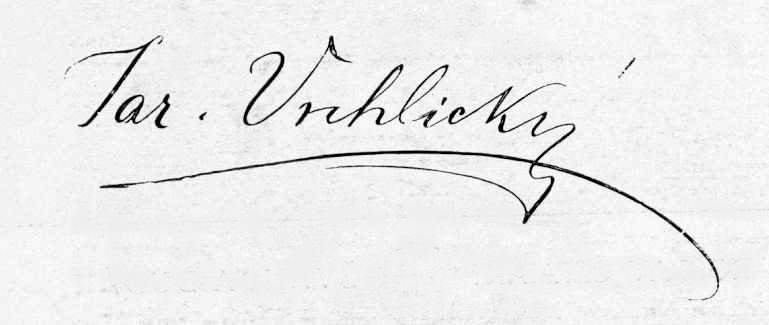 Jar. Vrchlický